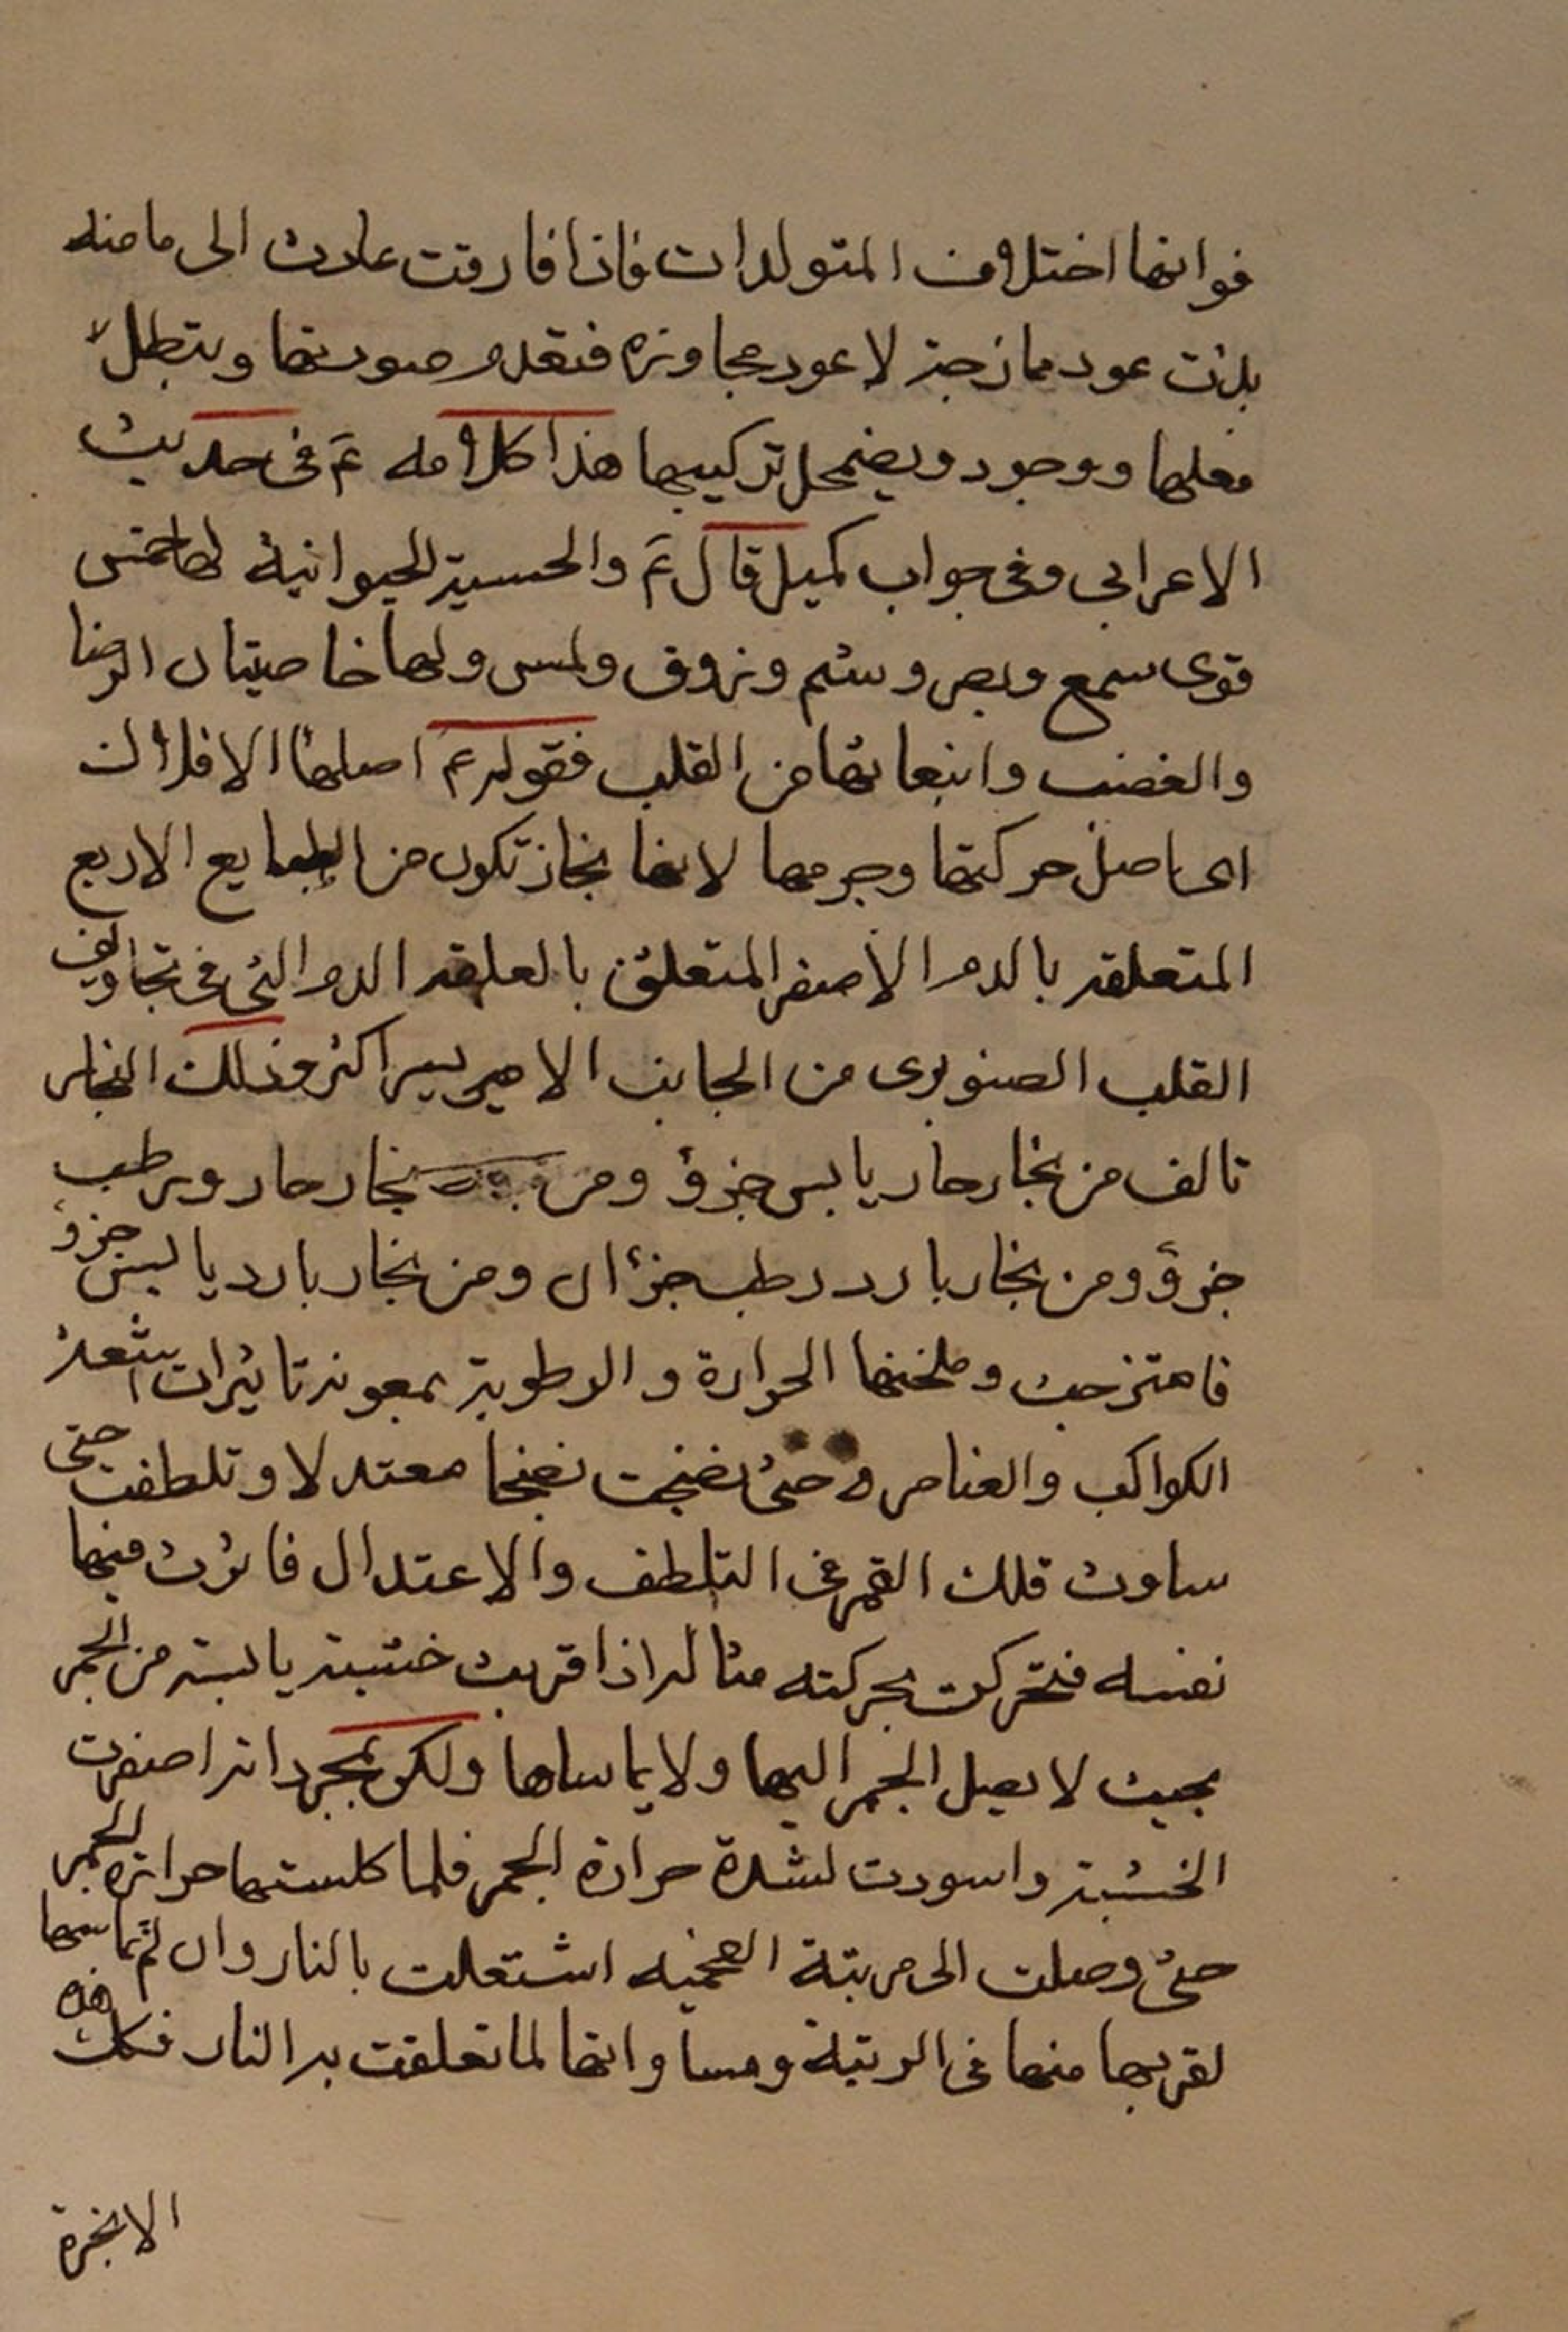 فراقها اختلاف المتولدات فاذا فارقت عادت الى ما منه
بدئت عود ممازجة لا عود مجاورة فتعدم صورتها ويبطل
فعلها ووجود ويضمحل تركيبها هذا كلامه ع في حديث
الاعرابي وفي جواب كميل قال ع والحسية الحيوانية لها خمس
قوى سمع وبصر وشم وذوق ولمس ولها خاصيتان الرضا
والغضب وانبعاثها من القلب فقوله ع اصلها الافلاك
اى اصل حركتها وجرمها لانها بخار تكون من الطبايع الاربع
المتعلقة بالدم الاصفر المتعلق بالعلقة الدم التى في تجاويف
القلب الصنوبرى من الجانب الايسر اكثر وذلك البخار
تالف من بخار حار يابس جزؤ ومن بخار حار ورطب
جزؤ ومن بخار بارد رطب جزءان ومن بخار بارد يابس جزؤ
فامتزجت وطبختها الحرارة والرطوبة بمعونة تاثيرات اشعة
الكواكب والعناصر حتى نضجت نضجا معتدلا وتلطفت حتى
ساوت فلك القمر في التلطف والاعتدال فاثرت فيها
نفسه فتحركت بحركته مثاله اذا قربت خشبة يابسة من الجمر
بحيث لا يصل الجمر اليها ولا يماسها ولكن بمجرد انه اصفرت
الخشبة واسودت لشدة حرارة الجمر فلما كلستها حرارة الجمر
حتى وصلت الى مرتبة الفحمية اشتعلت بالنار وان لم تماسها
لقربها منها في الرتبة ومساواتها لما تعلقت به النار فكك هذه
الابخرة